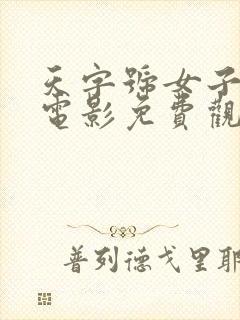 天字號女子
電影免費觀
普列德戈里耶